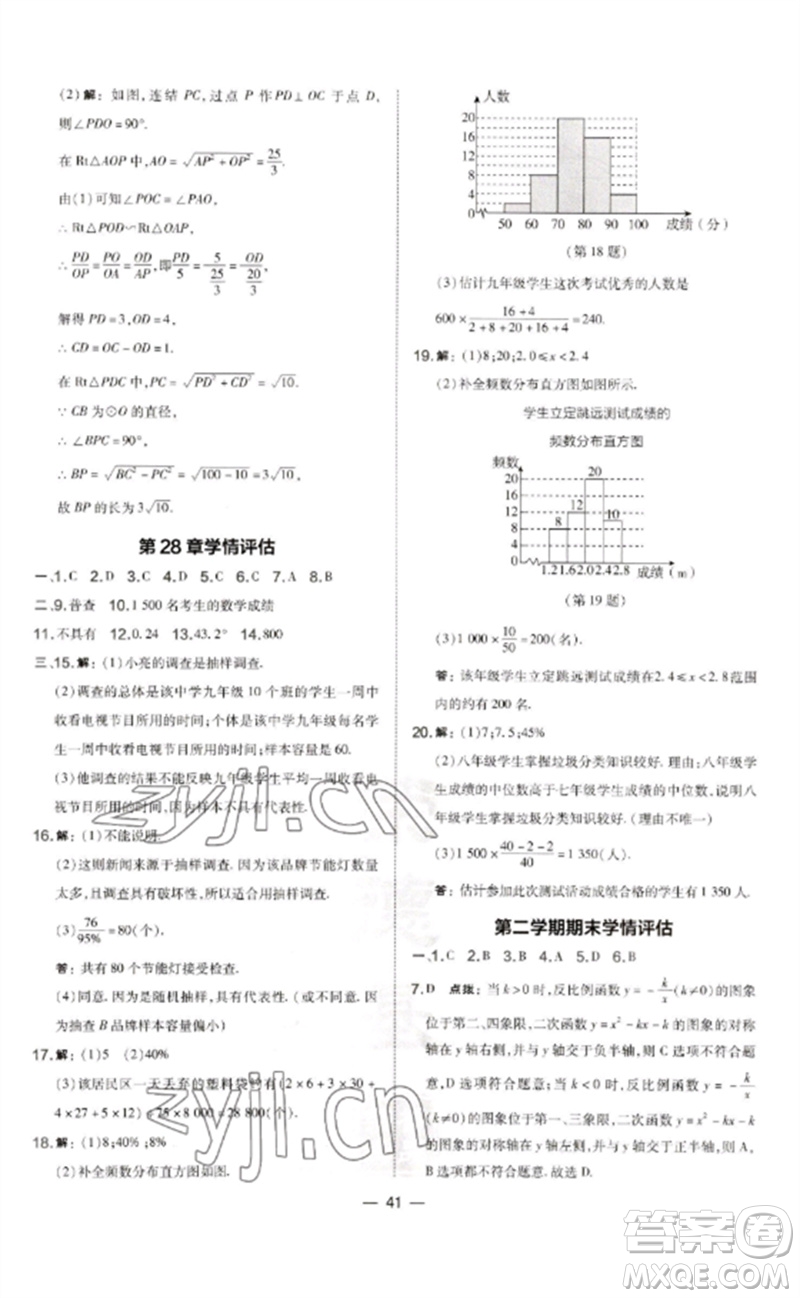 (2)解：如图,连结 PC,过点 P 作PD⊥OC 于点 D,
则∠PDO=90°.
在 Rt△AOP 中,AO=√(AP²+OP²)=25/3.
由(1)可知∠POC=∠PAO,
∴ Rt△POD∽Rt△OAP.
∴ PD/OP=PO/OA=OD/AP,即PD/5=5/(25/3)=OD/(20/3).
解得 PD=3,OD=4,
∴ CD=OC-OD=1.
在 Rt△PDC 中,PC=√(PD²+CD²)=√10.
∵ CB 为⊙O 的直径,
∴ ∠BPC=90°,
∴ BP=√(BC²-PC²)=√(100-10)=3√10.
故 BP 的长为 3√10.
第 28 章学情评估
一、1.C 2.D 3.C 4.D 5.C 6.C 7.A 8.B
二、9.普查 10.1 500 名考生的数学成绩
11.不具有 12.0.24 13.43.2° 14.800
三、15.解：(1)小亮的调查是抽样调查.
(2)调查的总体是该中学九年级 10 个班的学生一周中
收看电视节目所用的时间；个体是该中学九年级每名学
生一周中收看电视节目所用的时间；样本容量是 60.
(3)他调查的结果不能反映九年级学生平均一周收看电
视节目所用的时间,因为样本不具有代表性.
16.解：(1)不能说明.
(2)这则新闻来源于抽样调查.因为该品牌节能灯数量
太多,且调查具有破坏性,所以适合用抽样调查.
(3)76/95%=80(个).
答：共有 80 个节能灯接受检查.
(4)同意.因为是随机抽样,具有代表性.(不同意.因为
抽查 B 品牌样本容量偏小)
17.解：(1)5 (2)40%
(3)该居民区一天丢弃的塑料袋约有(2×6+3×30+
4×27+5×12)÷75×8 000=28 800(个).
18.解：(1)8;40%;8%
(2)补全频数分布直方图如图.
人数
20
16
12
10
8
6
4
2
0
50 60 70 80 90 100 成绩(分)
(第 18 题)
(3)估计九年级学生这次考试优秀的人数是
600×(16+4)/(2+8+20+16+4)=240.
19.解：(1)8;20;2.0≤x<2.4
(2)补全频数分布直方图如图所示.
学生立定跳远测试成绩的
频数分布直方图
频数
20
16
12
8
4
0
8
12
20
10
1.21.62.02.42.8 成绩(m)
(第 19 题)
(3)1 000×10/50=200(名).
答：该年级学生立定跳远测试成绩在 2.4≤x<2.8 范围
内的约有 200 名.
20.解：(1)7;7.5;45%
(2)八年级学生掌握垃圾分类知识较好.理由:八年级学
生成绩的中位数高于七年级学生成绩的中位数,说明八
年级学生掌握垃圾分类知识较好.(理由不唯一)
(3)1 500×(40-2-2)/40=1 350(人).
答：估计参加此次测试活动成绩合格的学生有 1 350 人.
第二学期期末学情评估
一、1.C 2.B 3.B 4.A 5.D 6.B
7.D 点拨：当 k>0 时,反比例函数 y=-k/x(k≠0)的图象
位于第二、四象限,二次函数 y=x²-kx-k 的图象的对称
轴在 y 轴右侧,并且与 y 轴交于负半轴,则 C 选项不符
合题意,D 选项符合题意.当 k<0 时,反比例函数 y=-k/x
(k≠0)的图象位于第一、三象限,二次函数 y=x²-kx-k
的图象的对称轴在 y 轴左侧,并且与 y 轴交于正半轴,A、
B 选项都不符合题意.故选 D.
— 41 —
zyjl.cn
zyjl.cn
答案圈
MXQE.COM